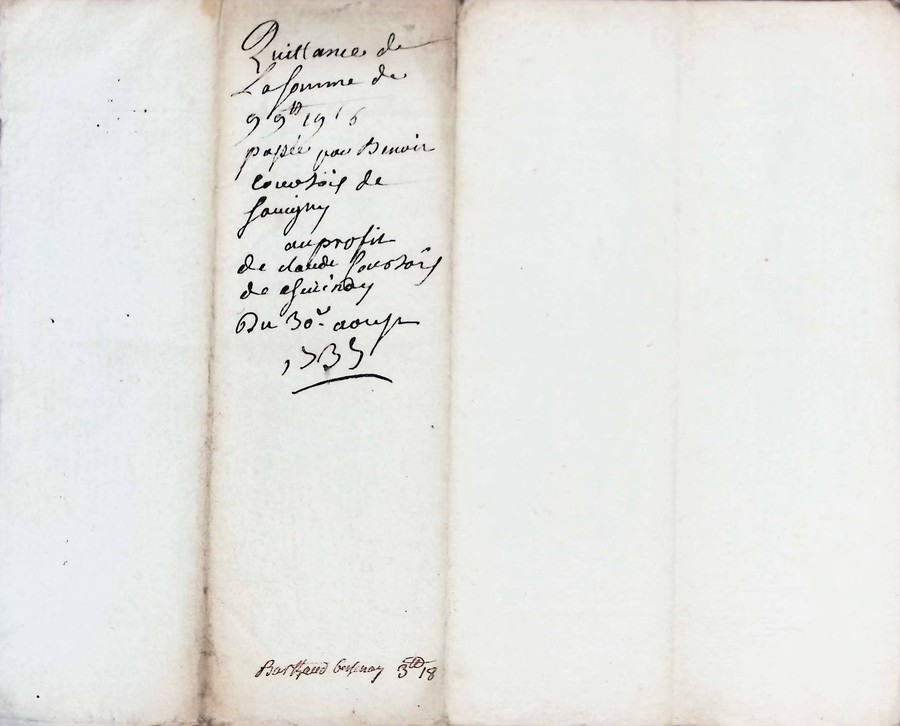 Quittance de
La somme de
99tt 19s 6
passée par Benoir
Courtois de
Savigny
au profit
de claude Courtois
de
Du 30e aoust
1735
Barthaud 3tt 18